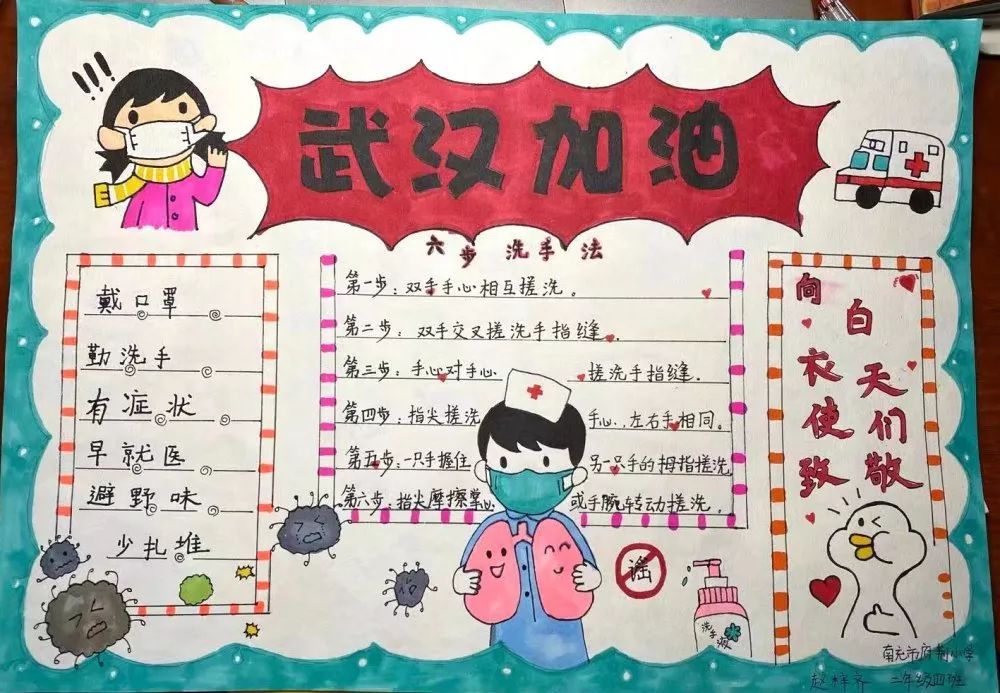 武汉加油
六步洗手法
戴口罩
勤洗手
有症状
早就医
避野味
少扎堆
第一步：双手手心相互搓洗。
第二步：双手交叉搓洗手指缝.
第三步：手心对手心 搓洗手指缝.
第四步：指尖搓洗 手心，左右手相同。
第五步：一只手握住 另一只手的拇指搓洗
第六步：指尖摩擦掌心 或手腕转动搓洗.
向白衣天使们致敬
谣
洗手液
南充市府荆小学
赵梓齐 二年级四班